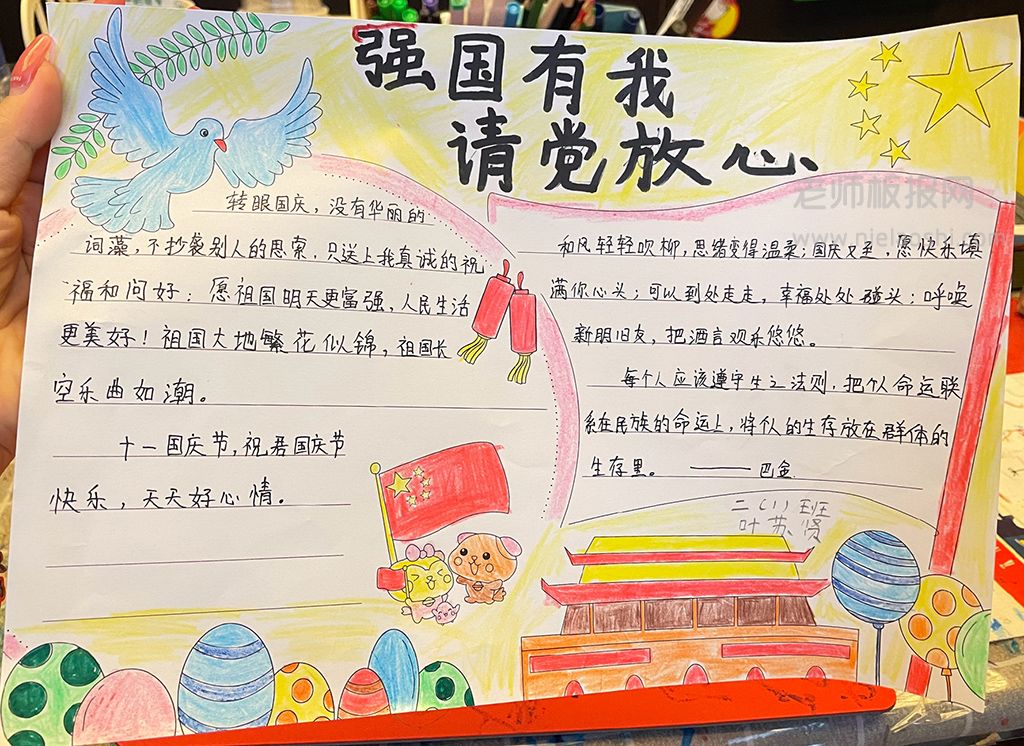 强国有我
请党放心
转眼国庆，没有华丽的
词藻，不抄袭别人的思索，只送上我真诚的祝
福和问好：愿祖国明天更富强，人民生活
更美好！祖国大地繁花似锦，祖国长
空乐曲如潮。
十一国庆节，祝君国庆节
快乐，天天好心情。
和风轻轻吹柳，思绪变得温柔；国庆又至，愿快乐填
满你心头；可以到处走走，幸福处处碰头；呼唤
新朋旧友，把酒言欢乐悠悠。
每个人应该遵守生之法则，把个人命运联
系在民族的命运上，将个人的生存放在群体的
生存里。——巴金
二（1）班
叶苏贤
老师板报网